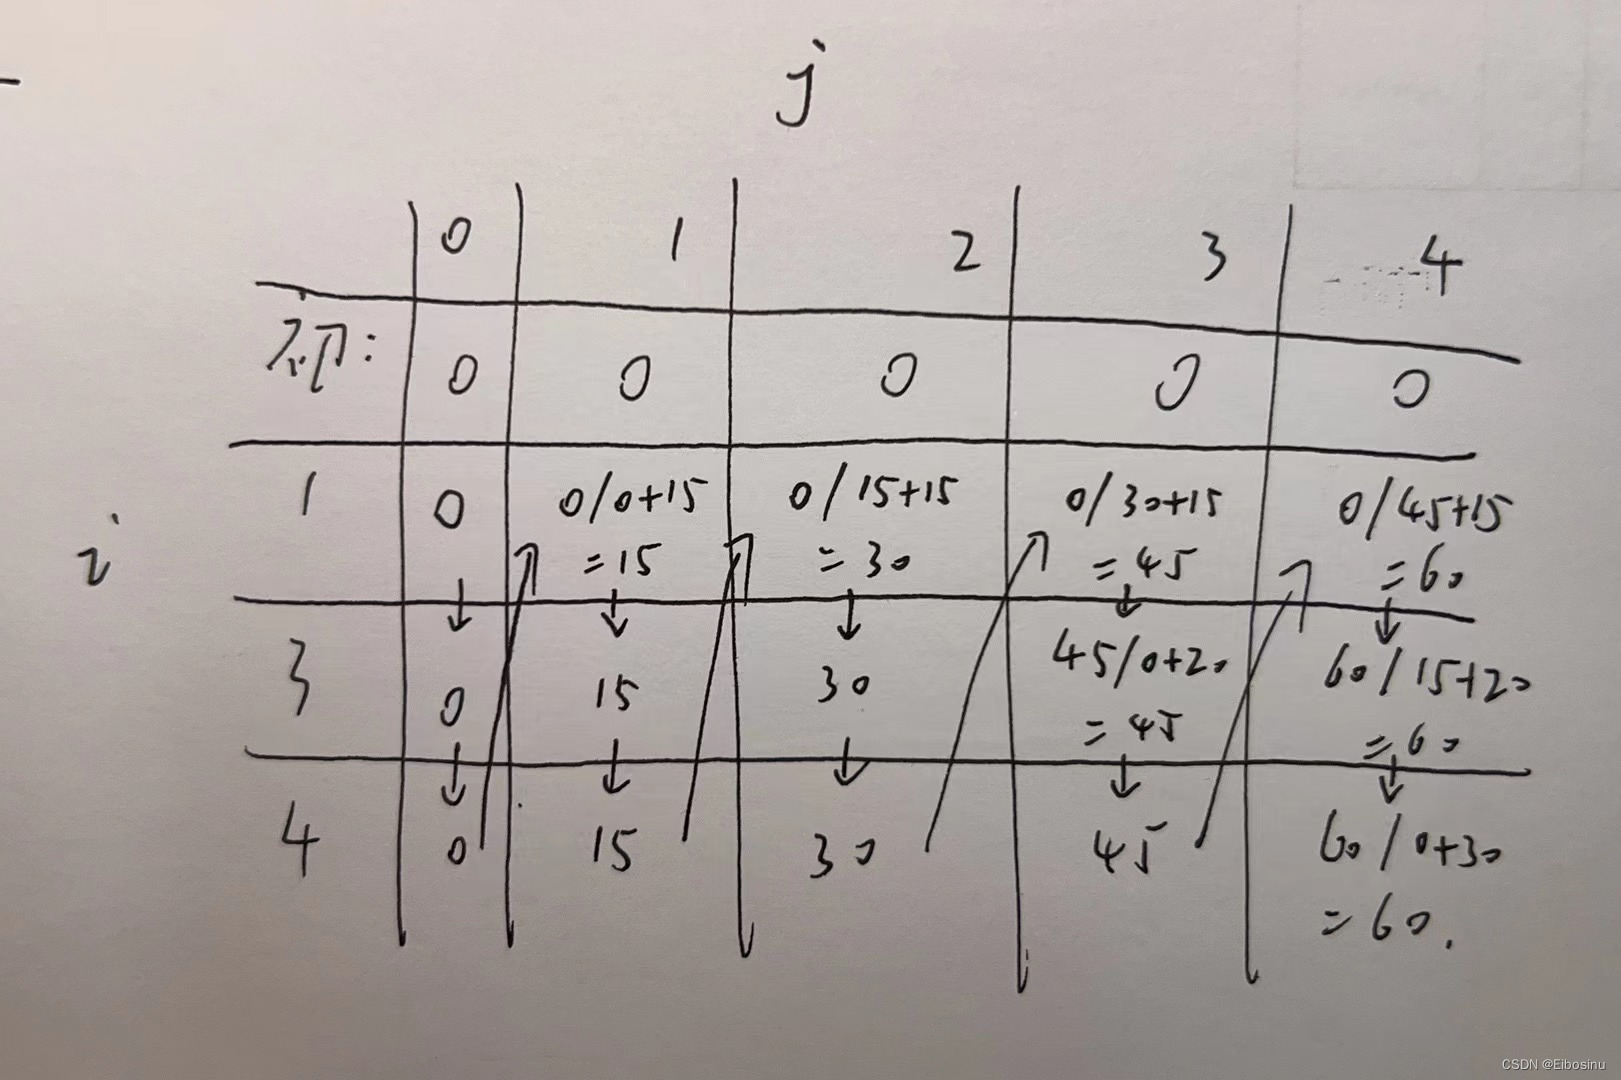 j
0 1 2 3 4
初: 0 0 0 0 0
1 0 0/0+15 0/15+15 0/30+15 0/45+15
=15 =30 =45 =60
i
3 0 15 30 45/0+20 60/15+20
=45 =60
4 0 15 30 45 60/0+30
=60.
CSDN @Eibosinu